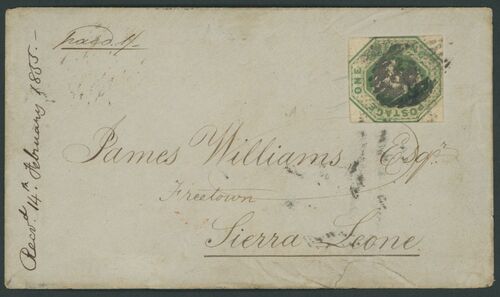 paid 1/-
Recd. 14th February 1855.-
ONE
POSTAGE
James Williams Esqr.
Freetown
Sierra Leone